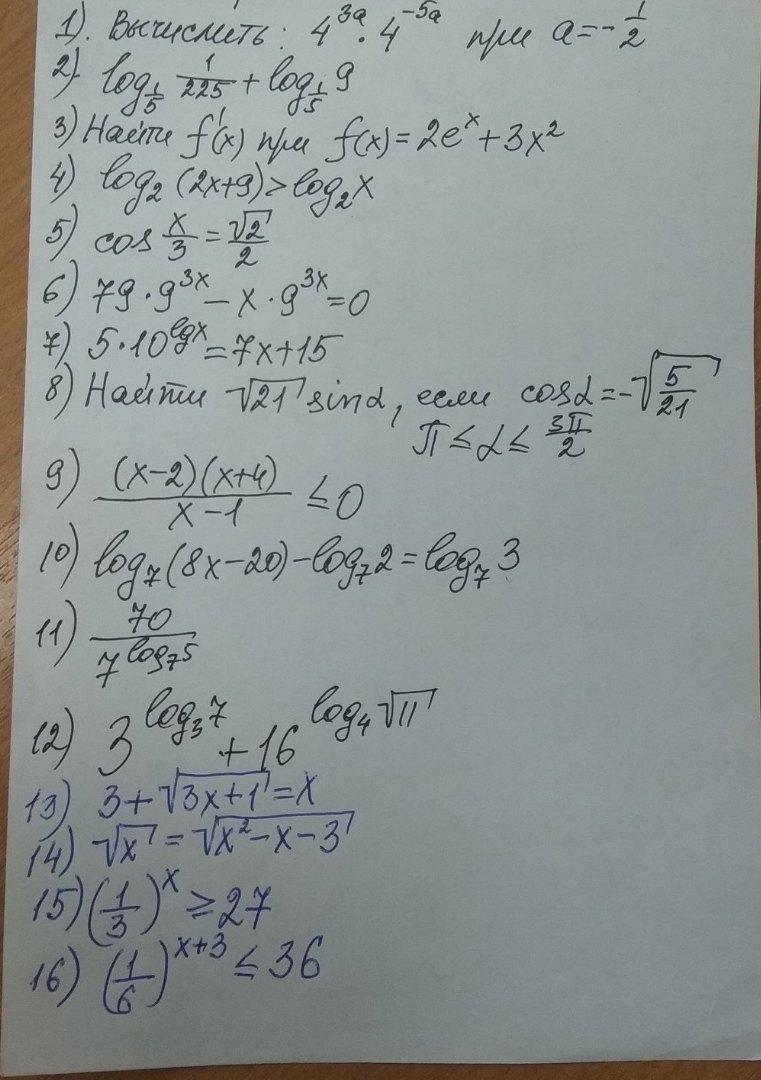 1). Вычислить: 4^{3a} · 4^{-5a} при a = -1/2
2). log_{1/5} 1/225 + log_{1/5} 9
3) Найти f'(x) при f(x) = 2e^x + 3x^2
4) log_2 (2x+9) > log_2 x
5) cos x/3 = √2/2
6) 79 · 9^{3x} - x · 9^{3x} = 0
7) 5 · 10^{lgx} = 7x + 15
8) Найти √21 sinα, если cosα = -√(5/21)
π ≤ α ≤ 3π/2
9) (x-2)(x+4)/(x-1) ≤ 0
10) log_7 (8x-20) - log_7 2 = log_7 3
11) 70/7^{log_7 5}
12) 3^{log_3 7} + 16^{log_4 √11}
13) 3 + √(3x+1) = x
14) √x = √(x^2-x-3)
15) (1/3)^x ≥ 27
16) (1/6)^{x+3} ≤ 36